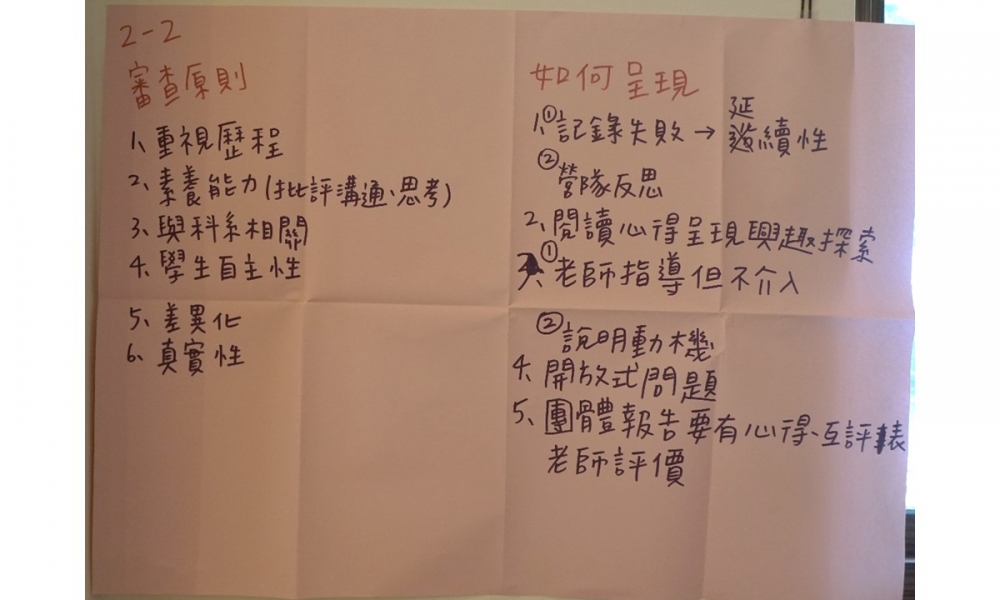 2-2
審查原則
1、重視歷程
2、素養能力(批評溝通、思考)
3、與科系相關
4、學生自主性
5、差異化
6、真實性
如何呈現
1、①記錄失敗→延續性
②營隊反思
2、閱讀心得呈現興趣探索
3、①老師指導但不介入
②說明動機
4、開放式問題
5、團體報告要有心得、互評表
老師評價